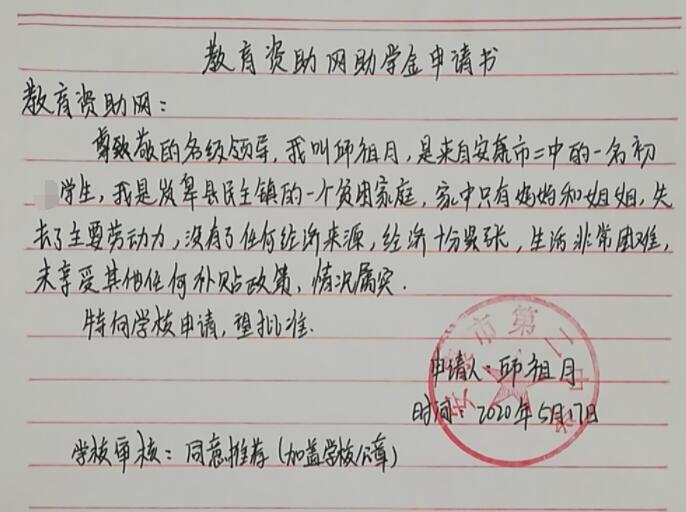 教育资助网助学金申请书
教育资助网：
尊致敬的各级领导，我叫邱祖月，是来自安康市二中的一名初
学生，我是岚皋县民主镇的一个贫困家庭，家中只有妈妈和姐姐，失
去了主要劳动力，没有了任何经济来源，经济十分紧张，生活非常困难，
未享受其他任何补贴政策，情况属实．
特向学校申请，望批准．
市第二中
申请人：邱祖月
时间：2020年5月17日
学校审核：同意推荐（加盖学校公章）